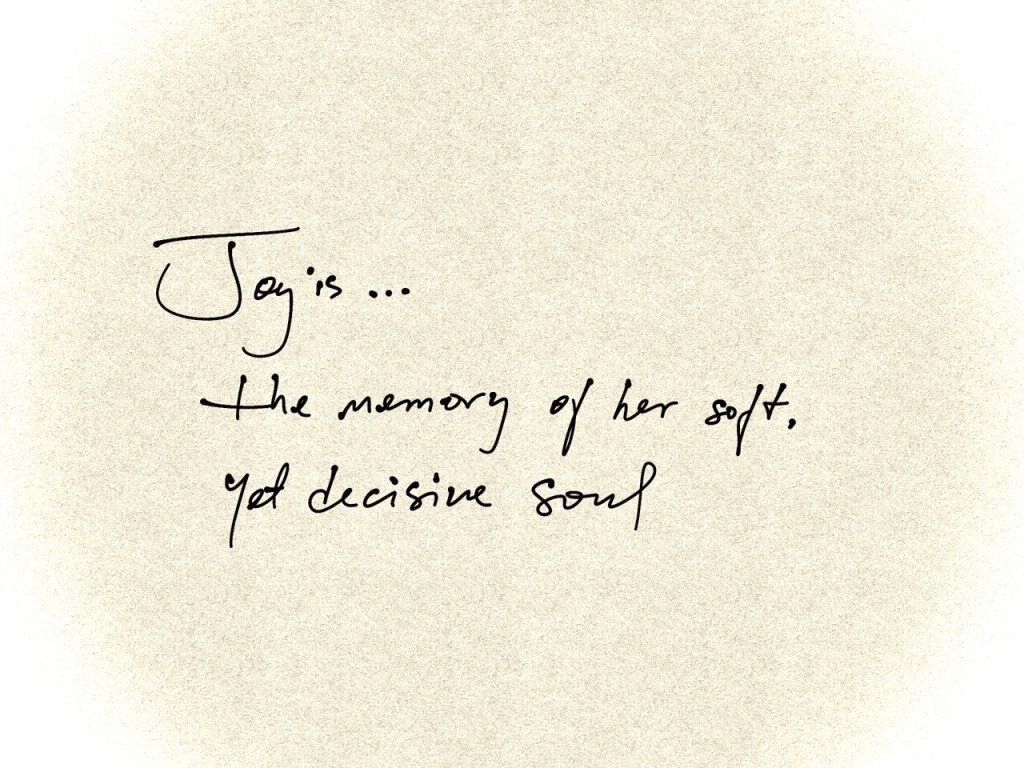 Joy is ...
the memory of her soft,
yet decisive soul